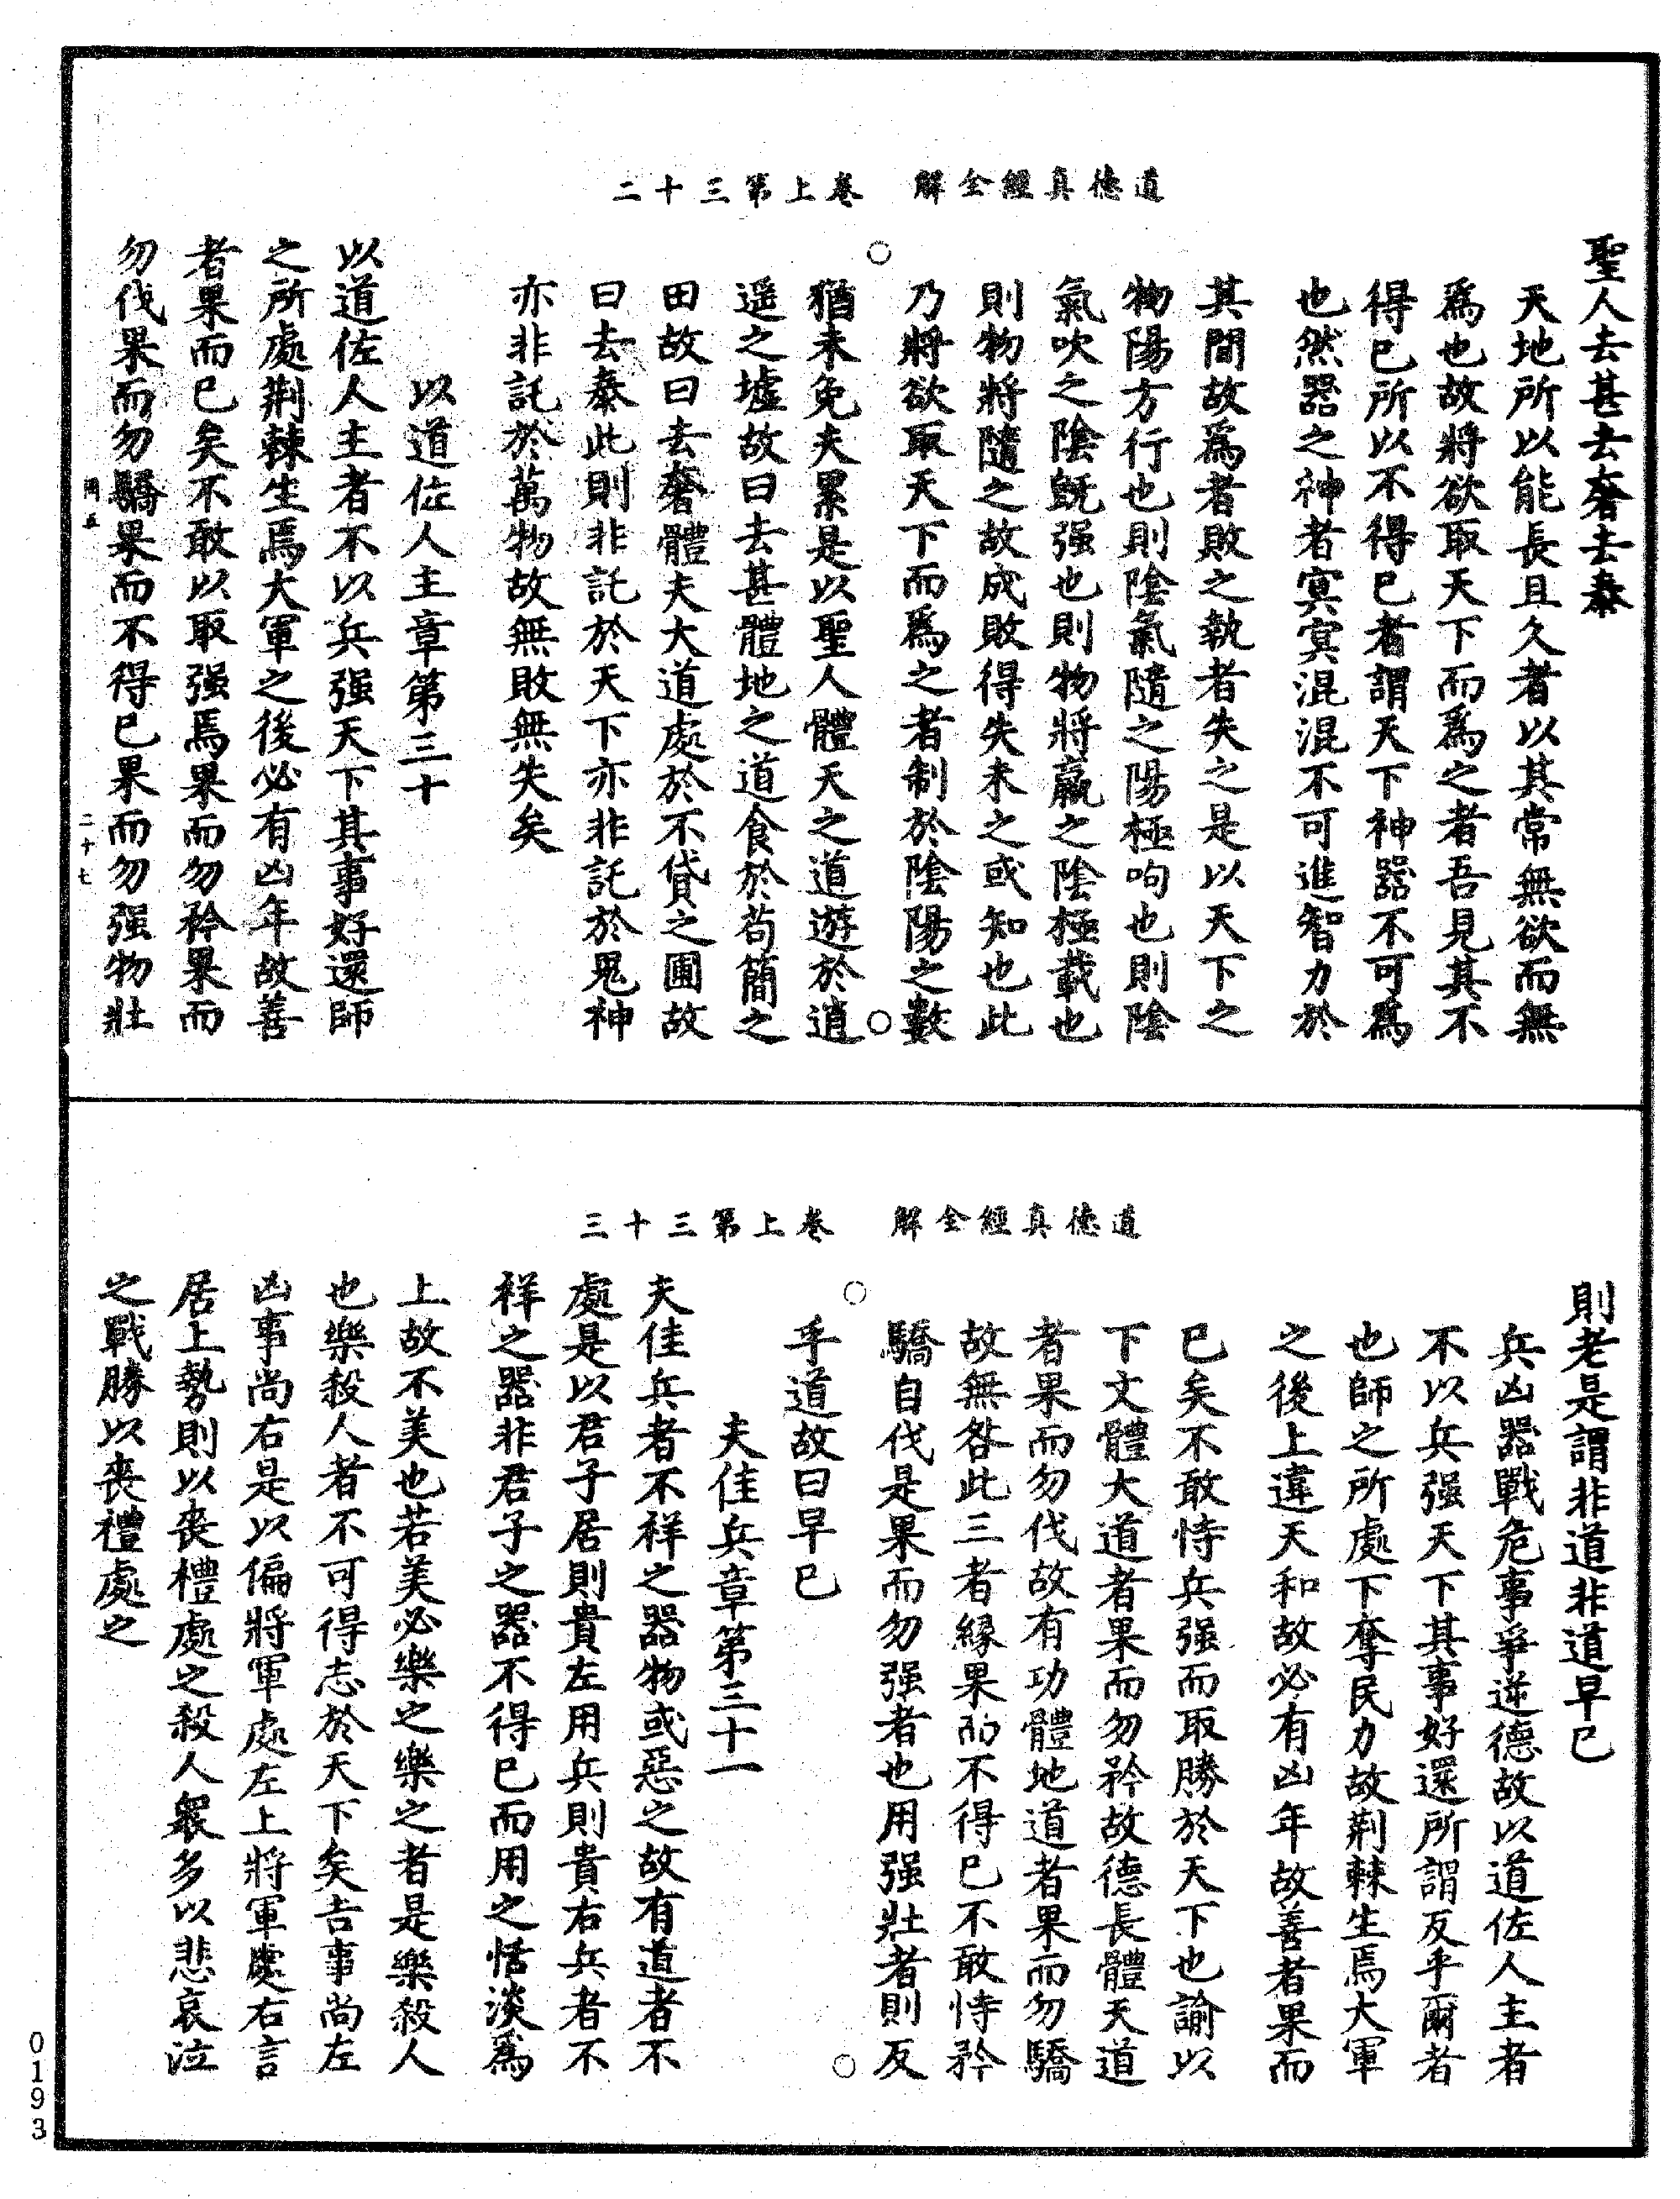 道德真經全解　卷上第三十二
聖人去甚去奢去泰
天地所以能長且久者以其常無欲而無
爲也故將欲取天下而爲之者吾見其不
得已所以不得已者謂天下神器不可爲
也然器之神者冥冥混混不可進智力於
其間故爲者敗之執者失之是以天下之
物陽方行也則陰氣隨之陽極呴也則陰
氣吹之陰旣强也則物將羸之陰極載也
則物將隨之故成敗得失未之或知也此
乃將欲取天下而爲之者制於陰陽之數
猶未免夫累是以聖人體天之道遊於逍
遥之墟故曰去甚體地之道食於苟簡之
田故曰去奢體夫大道處於不貸之圃故
曰去泰此則非託於天下亦非託於鬼神
亦非託於萬物故無敗無失矣
以道佐人主章第三十
以道佐人主者不以兵强天下其事好還師
之所處荆棘生焉大軍之後必有凶年故善
者果而已矣不敢以取强焉果而勿矜果而
勿伐果而勿驕果而不得已果而勿强物壯
二十七
道德真經全解　卷上第三十三
則老是謂非道非道早已
兵凶器戰危事爭逆德故以道佐人主者
不以兵强天下其事好還所謂反乎爾者
也師之所處下奪民力故荆棘生焉大軍
之後上違天和故必有凶年故善者果而
已矣不敢恃兵强而取勝於天下也諭以
下文體大道者果而勿矜故德長體天道
者果而勿伐故有功體地道者果而勿驕
故無咎此三者緣果而不得已不敢恃矜
驕自伐是果而勿强者也用强壯者則反
乎道故曰早已
夫佳兵章第三十一
夫佳兵者不祥之器物或惡之故有道者不
處是以君子居則貴左用兵則貴右兵者不
祥之器非君子之器不得已而用之恬淡爲
上故不美也若美必樂之樂之者是樂殺人
也樂殺人者不可得志於天下矣吉事尚左
凶事尚右是以偏將軍處左上將軍處右言
居上勢則以喪禮處之殺人衆多以悲哀泣
之戰勝以喪禮處之
0193